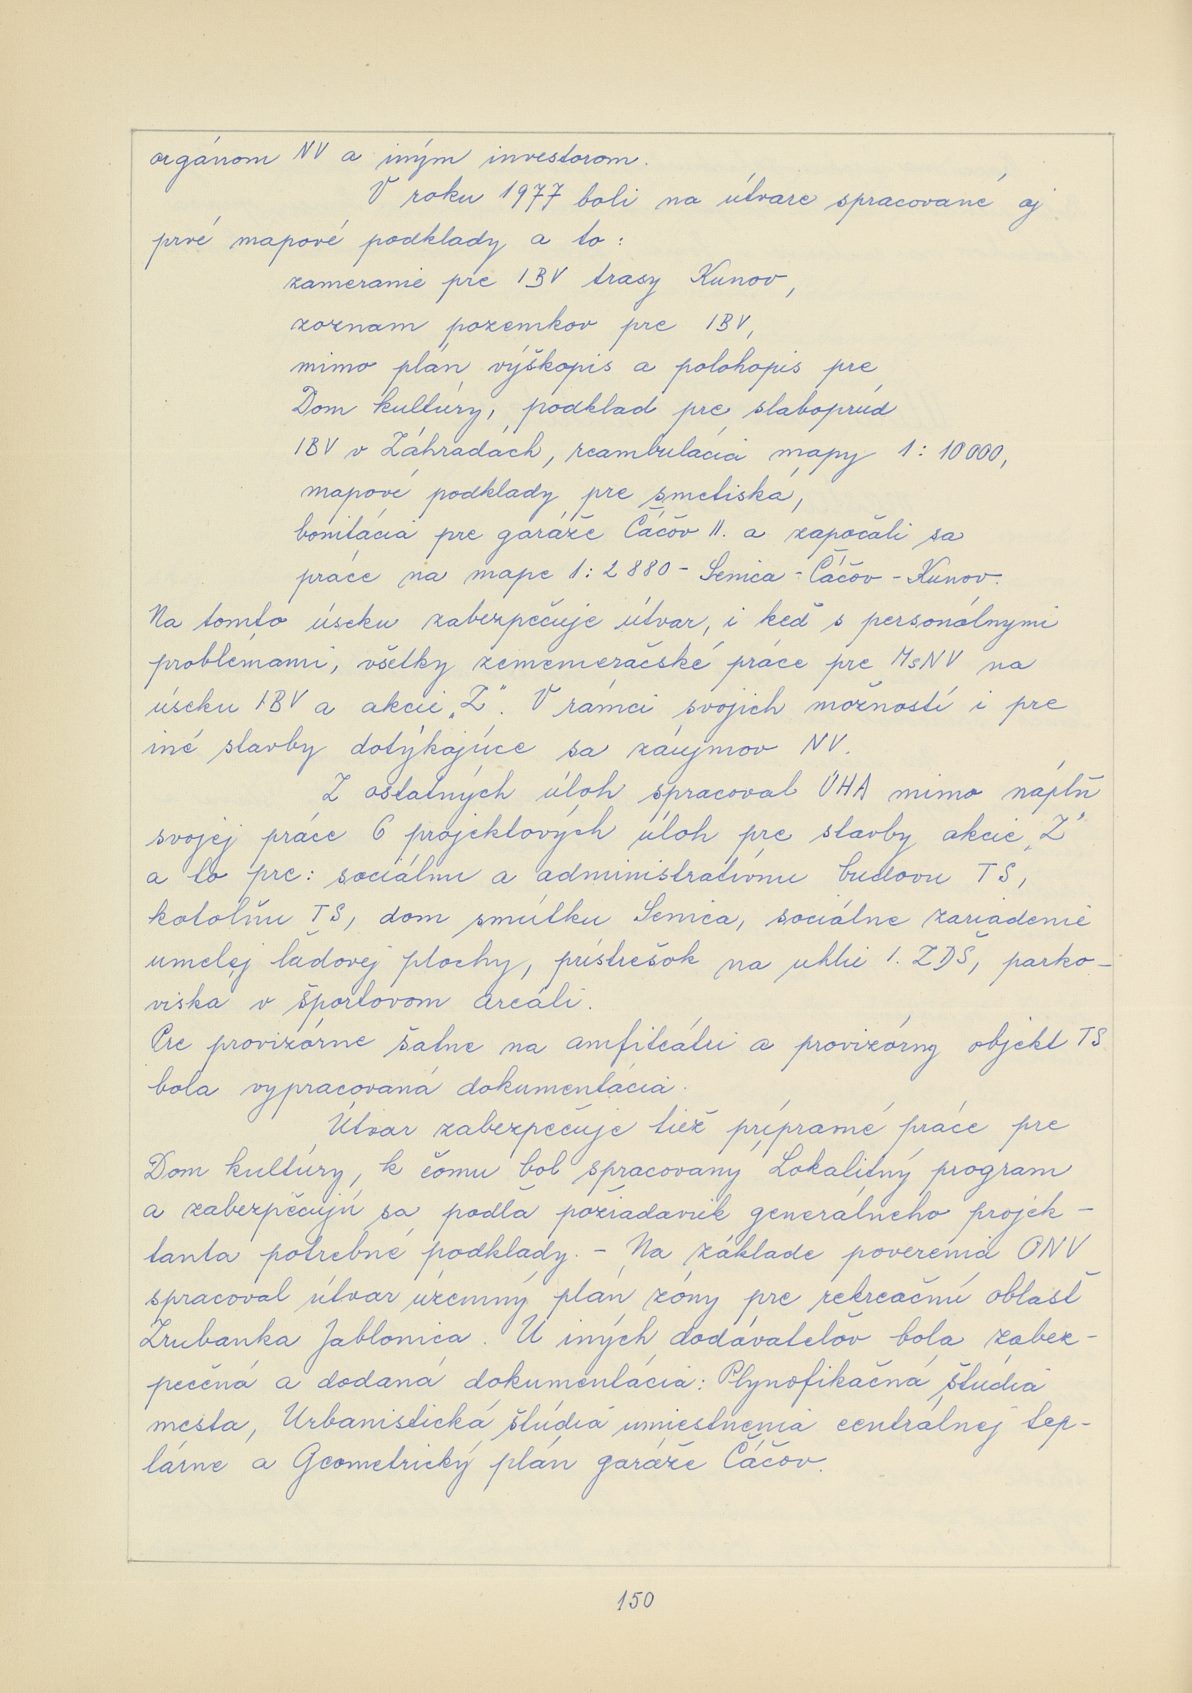 orgánom NV a iným investorom.
V roku 1977 boli na útvare spracované aj
prvé mapové podklady a to:
zameranie pre IBV trasy Kunov,
zoznam pozemkov pre IBV,
mimo plán výškopis a polohopis pre
Dom kultúry, podklad pre slaboprúd
IBV v Záhradách, reambulácia mapy 1:10000,
mapové podklady pre smetiská,
bonitácia pre garáže Čáčov II. a započali sa
práce na mape 1:2880 - Senica - Čáčov - Kunov.
Na tomto úseku zabezpečuje útvar, i keď s personálnymi
problémami, všetky zememeračské práce pre MsNV na
úseku IBV a akcie „Z". V rámci svojich možností i pre
iné stavby dotýkajúce sa záujmov NV.
Z ostatných úloh spracoval ÚHA mimo náplň
svojej práce 6 projektových úloh pre stavby akcie „Z"
a to pre: sociálnu a administratívnu budovu TS,
kotolňu TS, dom smútku Senica, sociálne zariadenie
umelej ľadovej plochy, prístrešok na uhlie 1. ZDŠ, parko-
viska v športovom areáli.
Pre provizórne šatne na amfiteátri a provizórny objekt TS
bola vypracovaná dokumentácia.
Útvar zabezpečuje tiež prípramé práce pre
Dom kultúry, k čomu bol spracovaný Lokalitný program
a zabezpečujú sa podľa požiadaviek generálneho projek-
tanta potrebné podklady. - Na základe poverenia ONV
spracoval útvar územný plán zóny pre rekreačnú oblasť
Zrubanka Jablonica. U iných dodávateľov bola zabez-
pečená a dodaná dokumentácia: Plynofikačná štúdia
mesta, Urbanistická štúdia umiestnenia centrálnej tep-
lárne a Geometrický plán garáže Čáčov.
150